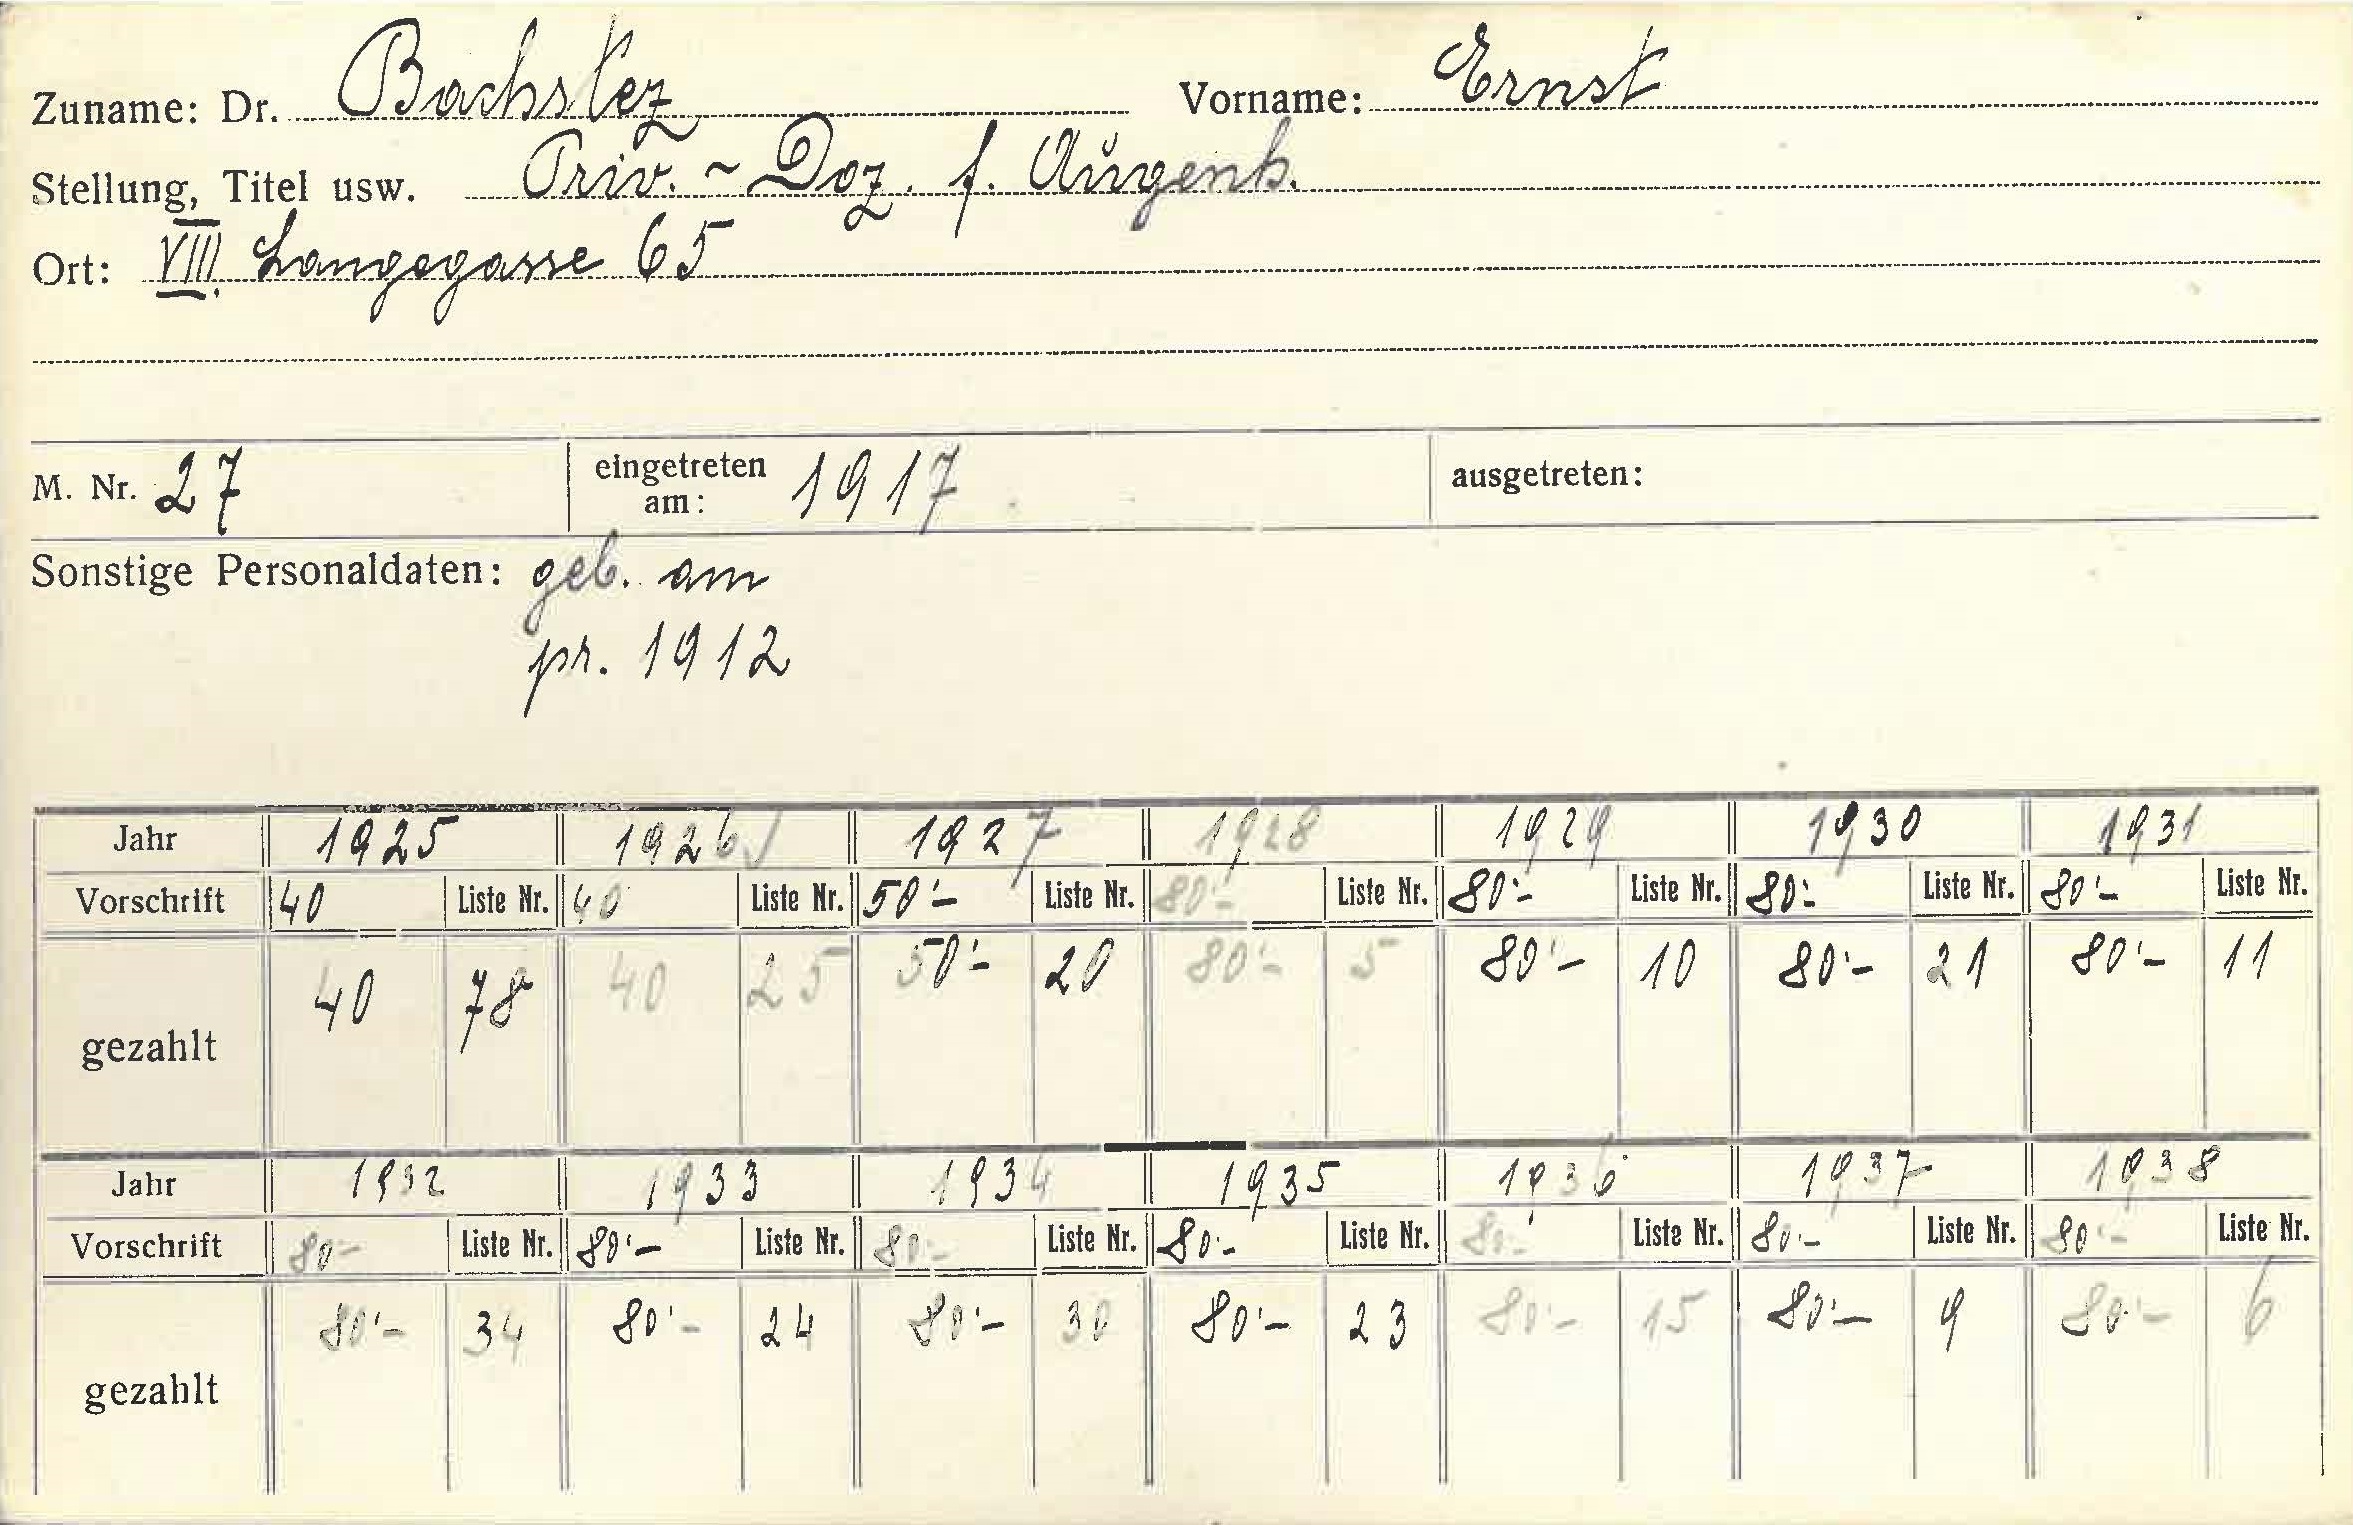 Zuname: Dr. Bachstez Vorname: Ernst
Stellung, Titel usw. Priv.-Doz. f. Augenh.
Ort: VIII. Langegasse 65
M. Nr. 27 eingetreten am: 1917 ausgetreten:
Sonstige Personaldaten: geb. am
pr. 1912
Jahr 1925 1926 1927 1928 1929 1930 1931
Vorschrift 40 Liste Nr. 40 Liste Nr. 50'- Liste Nr. 80'- Liste Nr. 80'- Liste Nr. 80'- Liste Nr. 80'- Liste Nr.
gezahlt 40 78 40 25 50'- 20 80'- 5 80'- 10 80'- 21 80'- 11
Jahr 1932 1933 1934 1935 1936 1937 1938
Vorschrift 80'- Liste Nr. 80'- Liste Nr. 80'- Liste Nr. 80'- Liste Nr. 80'- Liste Nr. 80'- Liste Nr. 80'- Liste Nr.
gezahlt 80'- 34 80'- 24 80'- 30 80'- 23 80'- 15 80'- 9 80'- 6